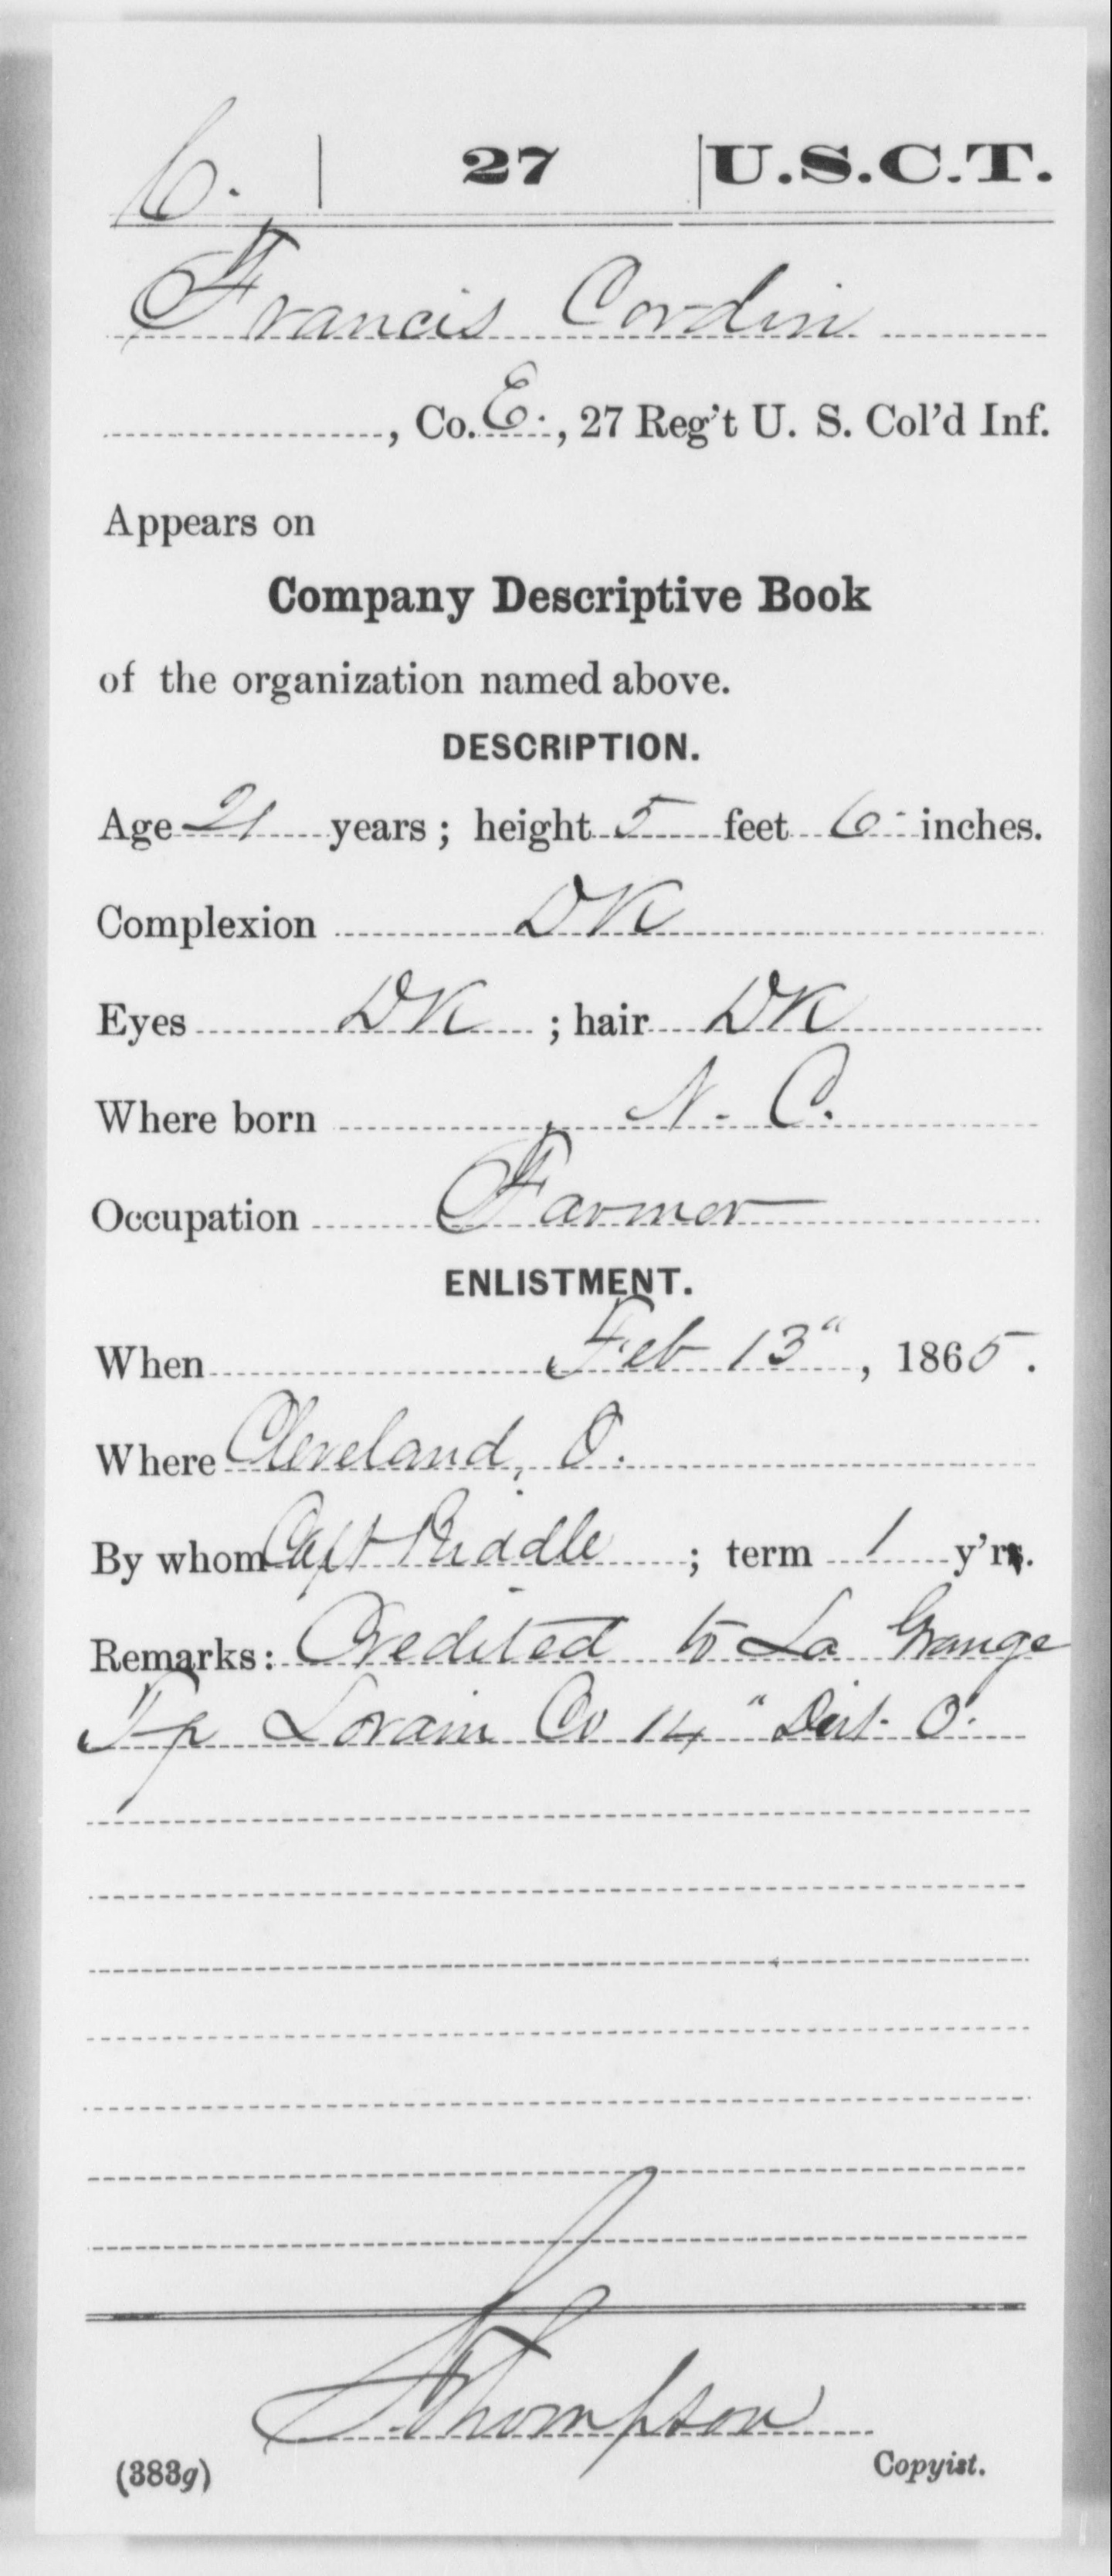 C. | 27 | U.S.C.T.
Francis Cordin
, Co. E., 27 Reg't U. S. Col'd Inf.
Appears on
Company Descriptive Book
of the organization named above.
DESCRIPTION.
Age 21 years; height 5 feet 6 inches.
Complexion DK
Eyes DK; hair DK
Where born N. C.
Occupation Farmer
ENLISTMENT.
When Feb 13", 1865.
Where Cleveland, O.
By whom Capt Riddle; term 1 y'r.
Remarks: Credited to La Grange
Tp Lorain Co 14" Dist. O.
Thompson
(383g) Copyist.